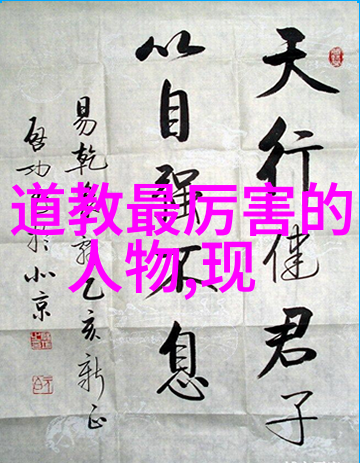 道教最厉害的
人物,现
天行健君子
以自强不息
易乾 乙亥新正
啓功 於北京